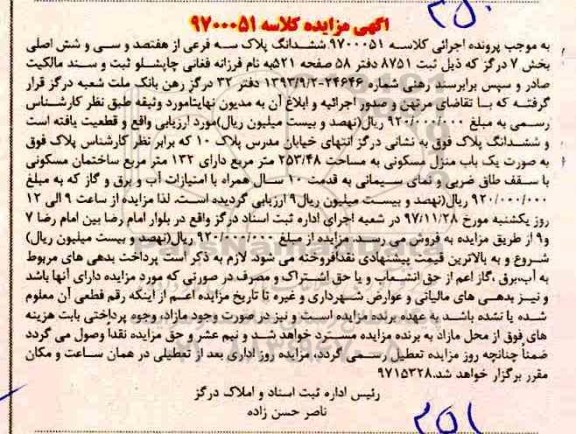 ۲۵۰
آگهی مزایده کلاسه ۹۷۰۰۰۵۱
به موجب پرونده اجرائی کلاسه ۹۷۰۰۰۵۱ ششدانگ پلاک سه فرعی از هفتصد و سی و شش اصلی
بخش ۷ درگز که ذیل ثبت ۸۷۵۱ دفتر ۵۸ صفحه ۵۲۱به نام فرزانه فغانی چاپشلو ثبت و سند مالکیت
صادر و سپس برابرسند رهنی شماره ۲۴۶۴۶-۱۳۹۳/۹/۲ دفتر ۳۲ درگز رهن بانک ملت شعبه درگز قرار
گرفته که بـا تقاضای مرتهن و صدور اجرائیه و ابلاغ آن به مدیون نهایتامورد وثیقه طبق نظر کارشناس
رسمی به مبلغ ۹۲۰/۰۰۰/۰۰۰ ریال(نهصد و بیست میلیون ریال)مورد ارزیابی واقع و قطعیت یافته است
و ششدانگ پلاک فوق به نشانی درگز انتهای خیابان مدرس پلاک ۱۰ که برابر نظر کارشناس پلاک فوق
به صورت یک باب منزل مسکونی به مساحت ۲۵۳/۴۸ متر مربع دارای ۱۳۲ متر مربع ساختمان مسکونی
با سقف طاق ضربی و نمای سیمانی به قدمت ۱۰ سال همراه با امتیازات آب و برق و گاز که به مبلغ
۹۲۰/۰۰۰/۰۰۰ ریال(نهصد و بیست میلیون ریال۹ ارزیابی گردیده است. لذا مزایده از ساعت ۹ الی ۱۲
روز یکشنبه مورخ ۹۷/۱۱/۲۸ در شعبه اجرای اداره ثبت اسناد درگز واقع در بلوار امام رضا بین امام رضا ۷
و۹ از طریق مزایده به فروش می رسد. مزایده از مبلغ ۹۲۰/۰۰۰/۰۰۰ ریال(نهصد و بیست میلیون ریال)
شروع و به بالاترین قیمت پیشنهادی نقدافروخته می شود. لازم به ذکر است پرداخت بدهی های مربوط
به آب،برق ،گاز اعم از حق انشعاب و یا حق اشتراک و مصرف در صورتی که مورد مزایده دارای آنها باشد
و نیـز بدهـی های مالیاتی و عوارض شهرداری و غیره تا تاریخ مزایده اعـم از اینکه رقم قطعی آن معلوم
شده یا نشده باشد به عهده برنده مزایده است و نیز در صورت وجود مازاد، وجوه پرداختی بابت هزینه
های فوق از محل مازاد به برنده مزایده مسترد خواهد شد و نیم عشر و حق مزایده نقداً وصول می گردد
ضمناً چنانچه روز مزایده تعطیل رسمی گردد، مزایده روز اداری بعد از تعطیلی در همان ساعت و مکان
مقرر برگزار خواهد شد.۹۷۱۵۳۲۸
رئیس اداره ثبت اسناد و املاک درگز
ناصر حسن زاده
۲۵۱